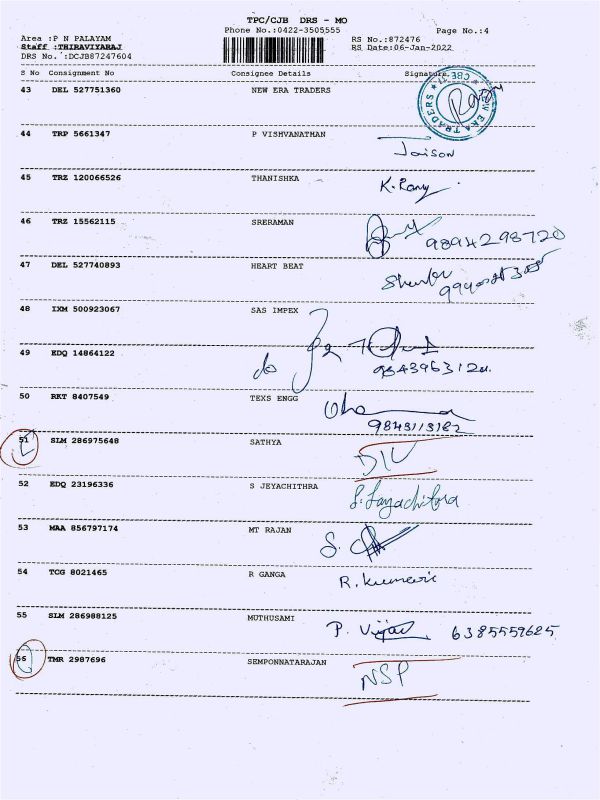 TPC/CJB DRS - MO
Phone No.:0422-3505555 Page No.:4
Area :P N PALAYAM RS No.:872476
Staff :THIRAVIYARAJ RS Date:06-Jan-2022
DRS No. :DCJB87247604
S No Consignment No Consignee Details Signature
43 DEL 527751360 NEW ERA TRADERS
NEW ERA TRADERS CBE
44 TRP 5661347 P VISHVANATHAN
Jaison
45 TRZ 120066526 THANISHKA
K. Rany
46 TRZ 15562115 SRERAMAN
9894298720
47 DEL 527740893 HEART BEAT
48 IXM 500923067 SAS IMPEX
49 EDQ 14864122
50 RKT 8407549 TEXS ENGG
9843113182
51 SLM 286975648 SATHYA
DIL
52 EDQ 23196336 S JEYACHITHRA
S. Jayachitra
53 MAA 856797174 MT RAJAN
S.
54 TCG 8021465 R GANGA
R. Kumari
55 SLM 286988125 MUTHUSAMI
P. Vijay 6385559625
56 TMR 2987696 SEMPONNATARAJAN
NSP